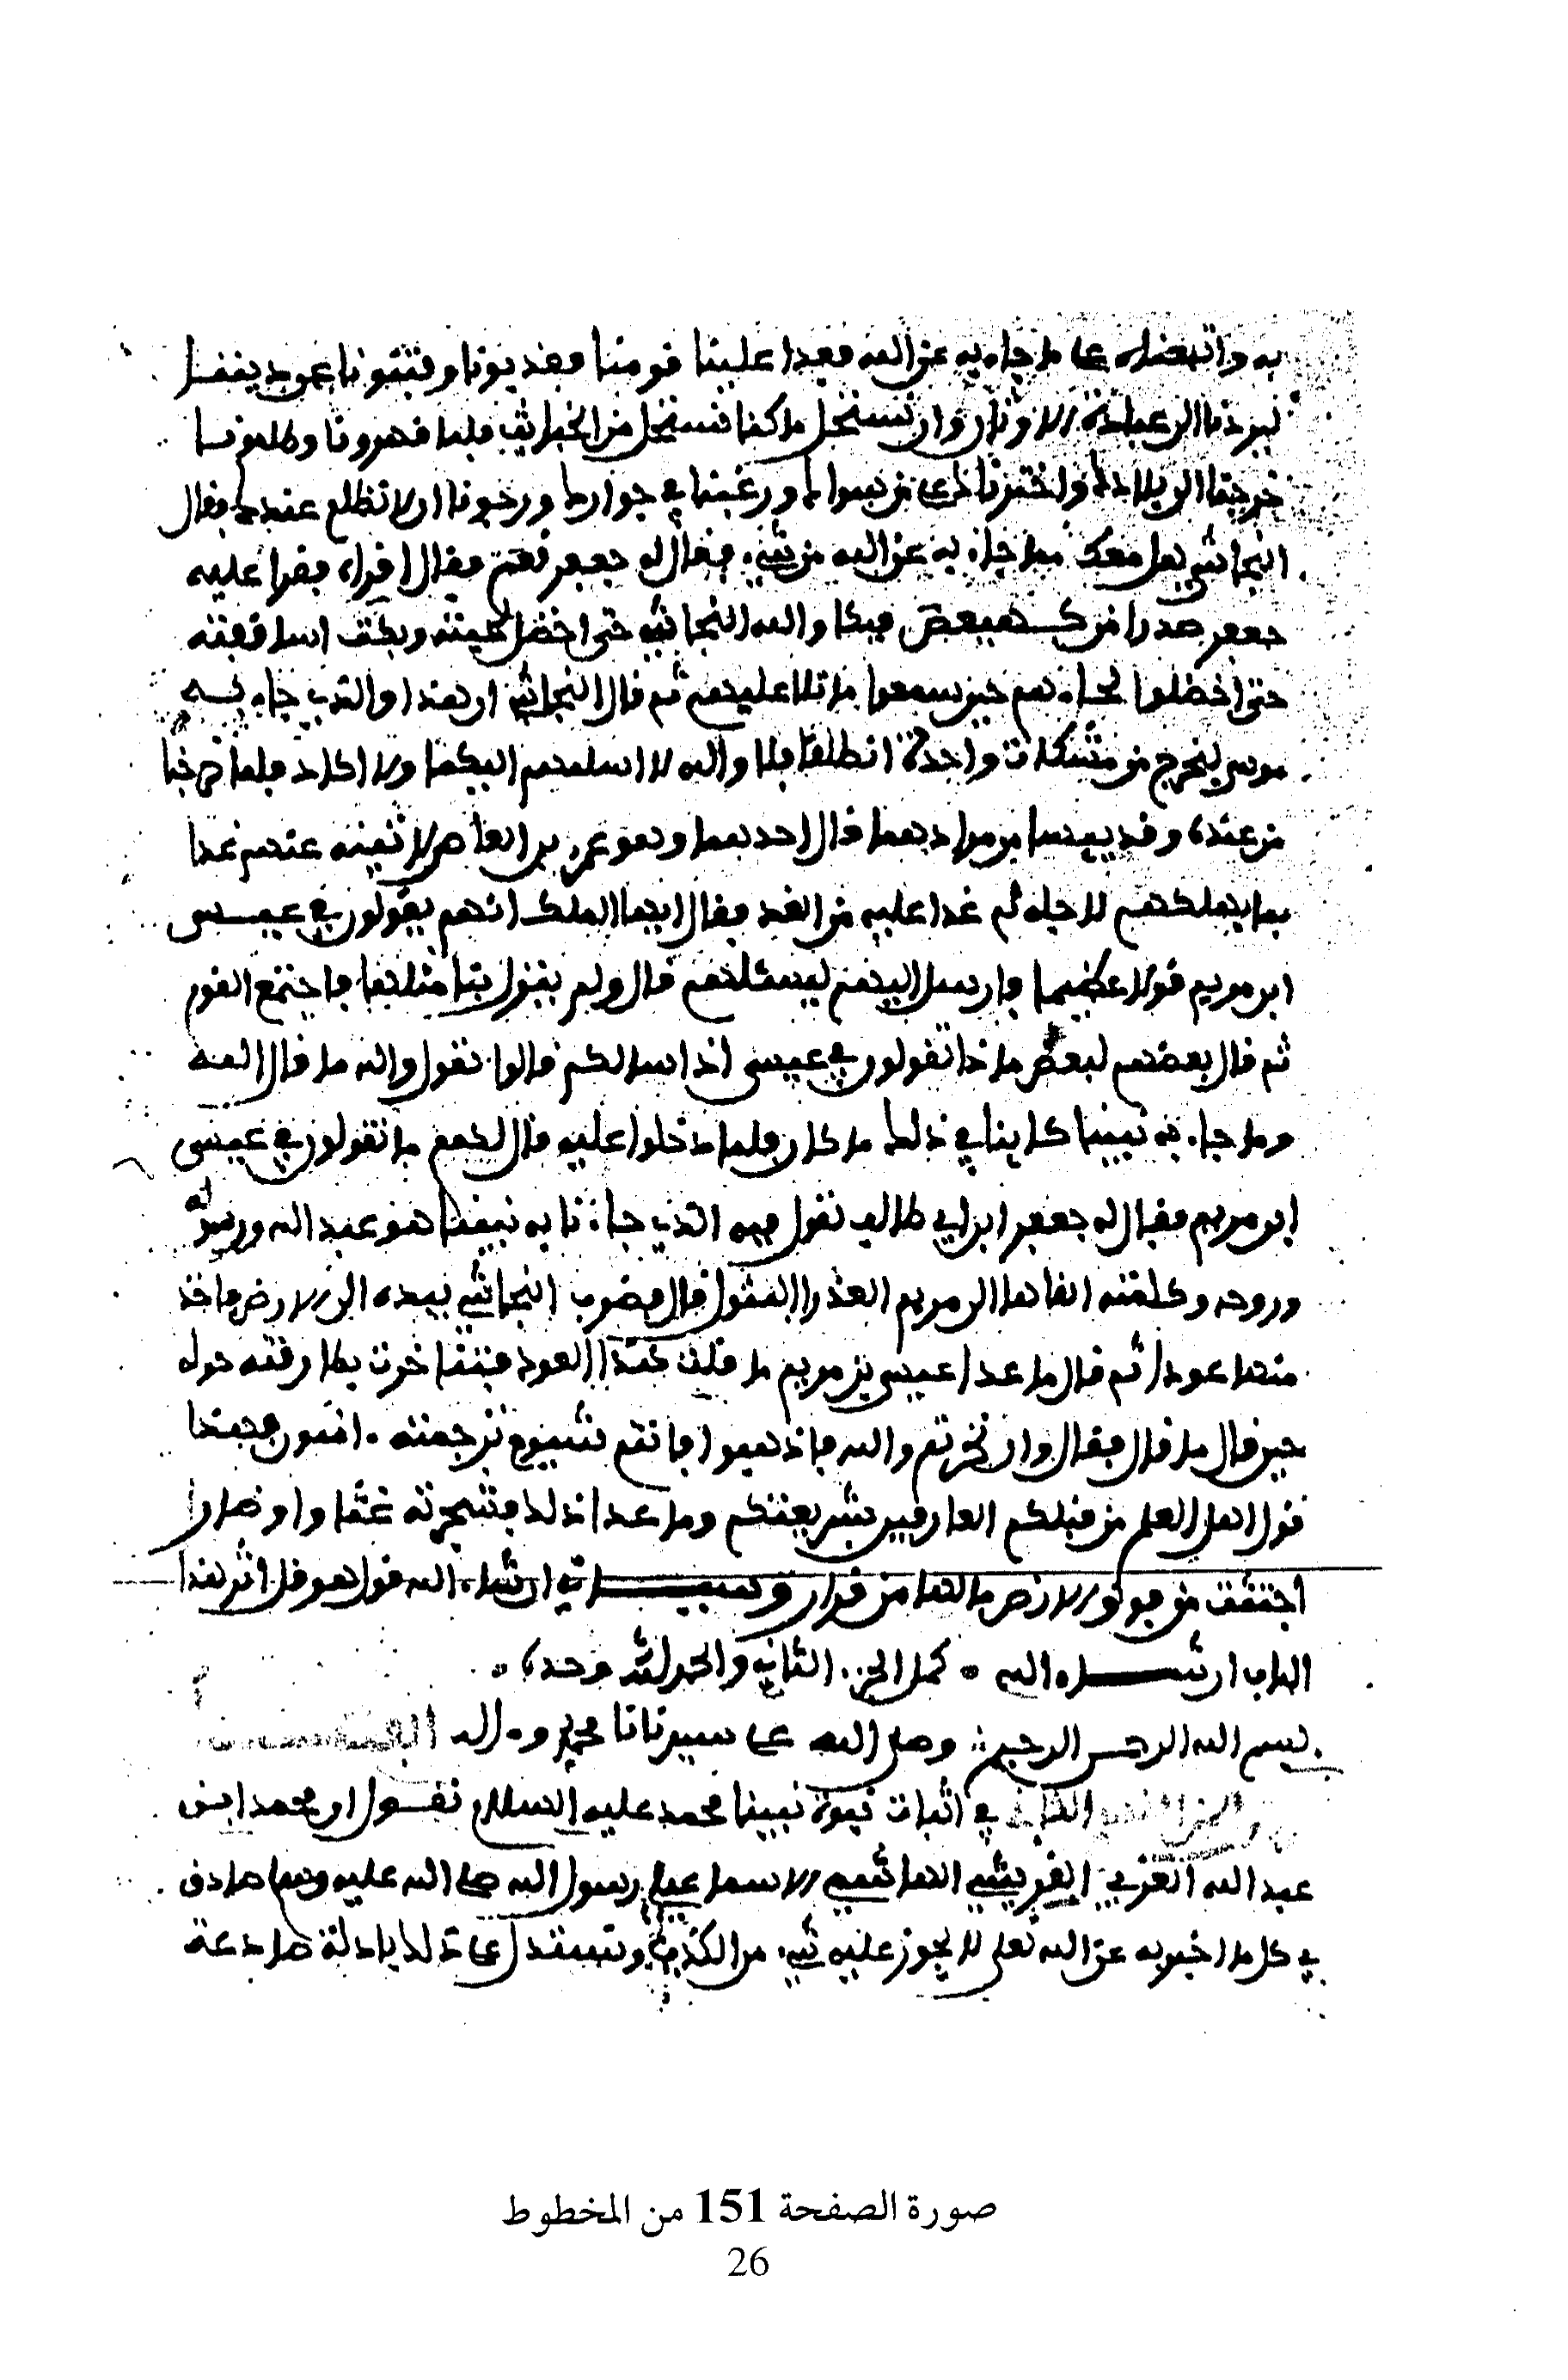 به واتبعناه على ما جاء به عن الله فعدا علينا قومنا فعذبونا وفتنونا عن ديننا
ليردنا الى عبادة الاوثان وان نستحل ما كنا نستحل من الخبائث فلما قهرونا وظلمونا
خرجنا الى بلادك واخترناك على من سواك ورغبنا في جوارك ورجونا ان لا نظلم عندك فقال
النجاشي هل معك مما جاء به عن الله من شيء فقال له جعفر نعم فقال اقراه فقرا عليه
جعفر صدرا من كهيعص فبكا والله النجاشي حتى اخضل لحيته وبكت اساقفته
حتى اخضلوا لحاءهم حين سمعوا ما تلا عليهم ثم قال النجاشي ان هذا والذي جاء به
موسى ليخرج من مشكات واحدة انطلقا فلا والله لا اسلمهم اليكما ولا اكاد فلما خرجا
من عنده وقد يئسا من مرادهما قال احدهما وهو عمر بن العاص لاتينه عنهم غدا
بما يهلكهم لاجله ثم غدا عليه من الغد فقال ايها الملك انهم يقولون في عيسى
ابن مريم قولا عظيما فارسل اليهم ليسئلهم قال ولم ينزل بنا مثلها فاجتمع القوم
ثم قال بعضهم لبعض ماذا تقولون في عيسى اذا سالكم قالوا نقول والله ما قال الله
وما جاء به نبينا كاينا في ذلك ما كان فلما دخلوا عليه قال لهم ما تقولون في عيسى
ابن مريم فقال له جعفر ابن ابي طالب نقول فيه الذي جاءنا به نبينا هو عبد الله ورسوله
وروحه وكلمته القاها الى مريم العذرا البتول قال فضرب النجاشي بيده الى الارض فاخذ
منها عودا ثم قال ما عدا عيسى بن مريم ما قلت هذا العود فتنخرت بطارقته حوله
حين قال ما قال فقال وان نخرتم والله فاذهبوا فانتم شيوم
قول اهل العلم من قبلكم العارفين بشريعتكم وما عدا ذلك فشجرته غثا واوضارا
اجتثت من فوق الارض مالها من قرار وسياتي ان شاء الله قول هرقل اثر هذا
الباب ان شاء الله ه كمل الجزء الثاني والحمد لله وحده ه
بسم الله الرحمن الرحيم وصلى الله على سيدنا محمد وءاله
في اثبات نبوة نبينا محمد عليه السلام نقول ان محمد ابن
عبد الله العربي القريشي الهاشمي الاسماعيلي رسول الله صلى الله عليه وسلم صادق
في كل ما اخبر به عن الله تعلى لا يجوز عليه شيء من الكذب ونستدل على ذلك بادلة صادعة
صورة الصفحة 151 من المخطوط
26